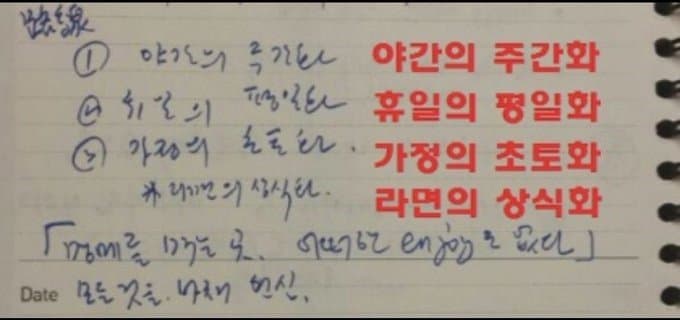 ① 야간의 주간화 야간의 주간화
② 휴일의 평일화 휴일의 평일화
③ 가정의 초토화. 가정의 초토화
※ 라면의 상식화. 라면의 상식화
「명예를 먹는 곳. 어떠한 enjoy도 없다」
Date 모든 것을 바쳐 헌신.